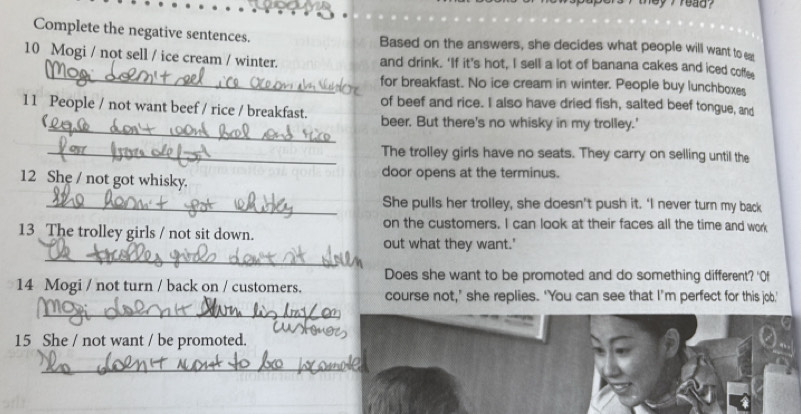 Complete the negative sentences.
10 Mogi / not sell / ice cream / winter.
Mogi doesn't sell ice cream in winter
11 People / not want beef / rice / breakfast.
don't want and rice
for
12 She / not got whisky.
She hasn't got whisky
13 The trolley girls / not sit down.
The trolley girls don't sit down
14 Mogi / not turn / back on / customers.
Mogi doesn't turn back on
customers
15 She / not want / be promoted.
She doesn't want to be promoted
read?
Based on the answers, she decides what people will want to eat
and drink. 'If it's hot, I sell a lot of banana cakes and iced coffee
for breakfast. No ice cream in winter. People buy lunchboxes
of beef and rice. I also have dried fish, salted beef tongue, and
beer. But there's no whisky in my trolley.'
The trolley girls have no seats. They carry on selling until the
door opens at the terminus.
She pulls her trolley, she doesn't push it. 'I never turn my back
on the customers. I can look at their faces all the time and work
out what they want.'
Does she want to be promoted and do something different? 'Of
course not,' she replies. 'You can see that I'm perfect for this job.'